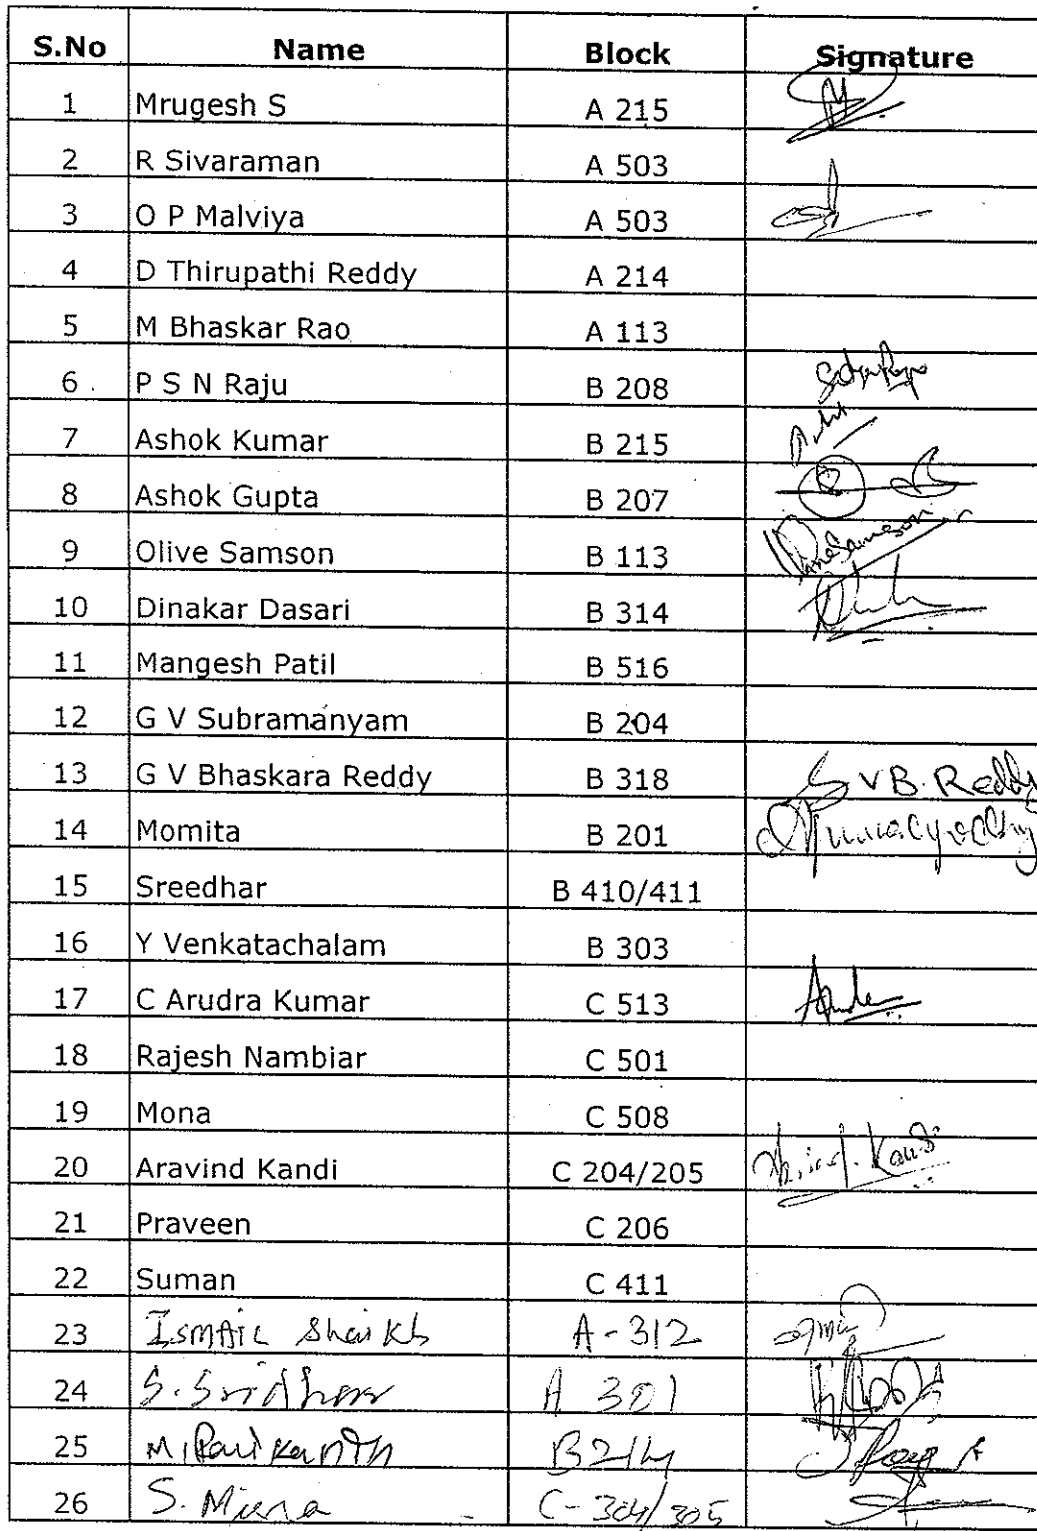 S.No Name Block Signature
1 Mrugesh S A 215
2 R Sivaraman A 503
3 O P Malviya A 503
4 D Thirupathi Reddy A 214
5 M Bhaskar Rao A 113
6 P S N Raju B 208
7 Ashok Kumar B 215
8 Ashok Gupta B 207
9 Olive Samson B 113
10 Dinakar Dasari B 314
11 Mangesh Patil B 516
12 G V Subramanyam B 204
13 G V Bhaskara Reddy B 318 G V B. Reddy
14 Momita B 201
15 Sreedhar B 410/411
16 Y Venkatachalam B 303
17 C Arudra Kumar C 513
18 Rajesh Nambiar C 501
19 Mona C 508
20 Aravind Kandi C 204/205 Aravind. Kandi
21 Praveen C 206
22 Suman C 411
23 Ismail Shaikh A-312
24 S. Sridhar A 301
25 M. Ravikanth B214
26 S. Misra C-304/305